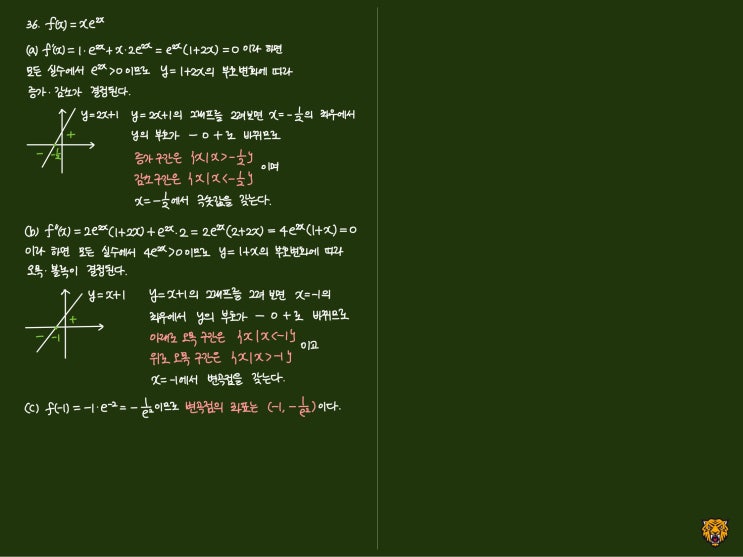 36. f(x) = xe^{2x}
(a) f'(x) = 1·e^{2x} + x·2e^{2x} = e^{2x}(1+2x) = 0 이라 하면
모든 실수에서 e^{2x} > 0 이므로 y = 1+2x의 부호변화에 따라
증가·감소가 결정된다.
y = 2x+1 y = 2x+1의 그래프를 그려보면 x = -1/2의 좌우에서
+ y의 부호가 - 0 + 로 바뀌므로
- -1/2 증가 구간은 {x|x > -1/2}
이며
감소 구간은 {x|x < -1/2}
x = -1/2에서 극솟값을 갖는다.
(b) f''(x) = 2e^{2x}(1+2x) + e^{2x}·2 = 2e^{2x}(2+2x) = 4e^{2x}(1+x) = 0
이라 하면 모든 실수에서 4e^{2x} > 0 이므로 y = 1+x의 부호변화에 따라
오목·볼록이 결정된다.
y = x+1 y = x+1의 그래프를 그려 보면 x = -1의
+ 좌우에서 y의 부호가 - 0 + 로 바뀌므로
- -1 아래로 오목 구간은 {x|x < -1}
이고
위로 오목 구간은 {x|x > -1}
x = -1에서 변곡점을 갖는다.
(c) f(-1) = -1·e^{-2} = -1/e^{2} 이므로 변곡점의 좌표는 (-1, -1/e^{2}) 이다.